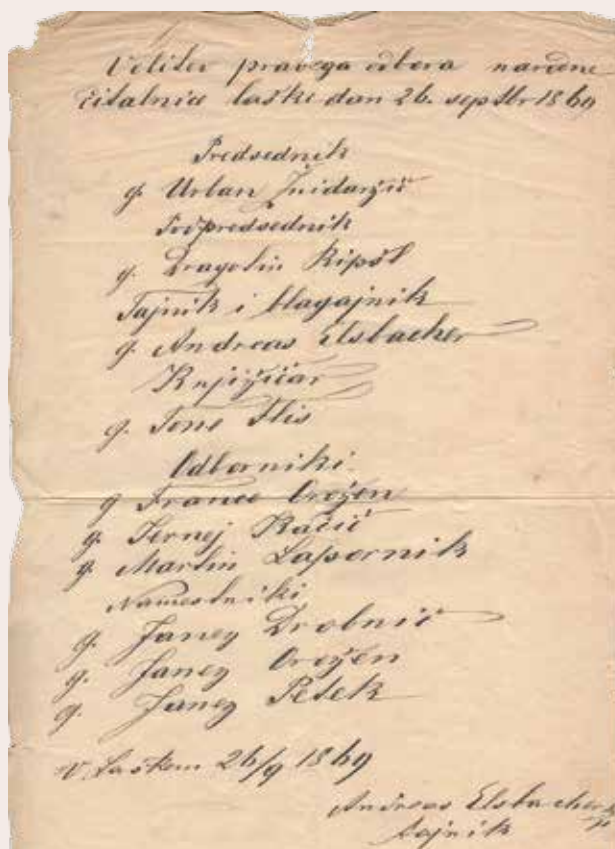 Volitev pravega odbora narodne
čitalnice laške dan 26. septbr 1869
Predsednik
g. Urban Žnidaržič
Podpredsednik
g. Dragotin Ripšl
Tajnik i blagajnik
g. Andreas Elsbacher
Knjižičar
g. Tone Flis
Odborniki
g. France Orožen
g. Jernej Kačič
g. Martin Lapornik
Namestniki
g. Janez Drobnič
g. Janez Orožen
g. Janez Petek
V Laškem 26/9 1869
Andreas Elsbacher
tajnik